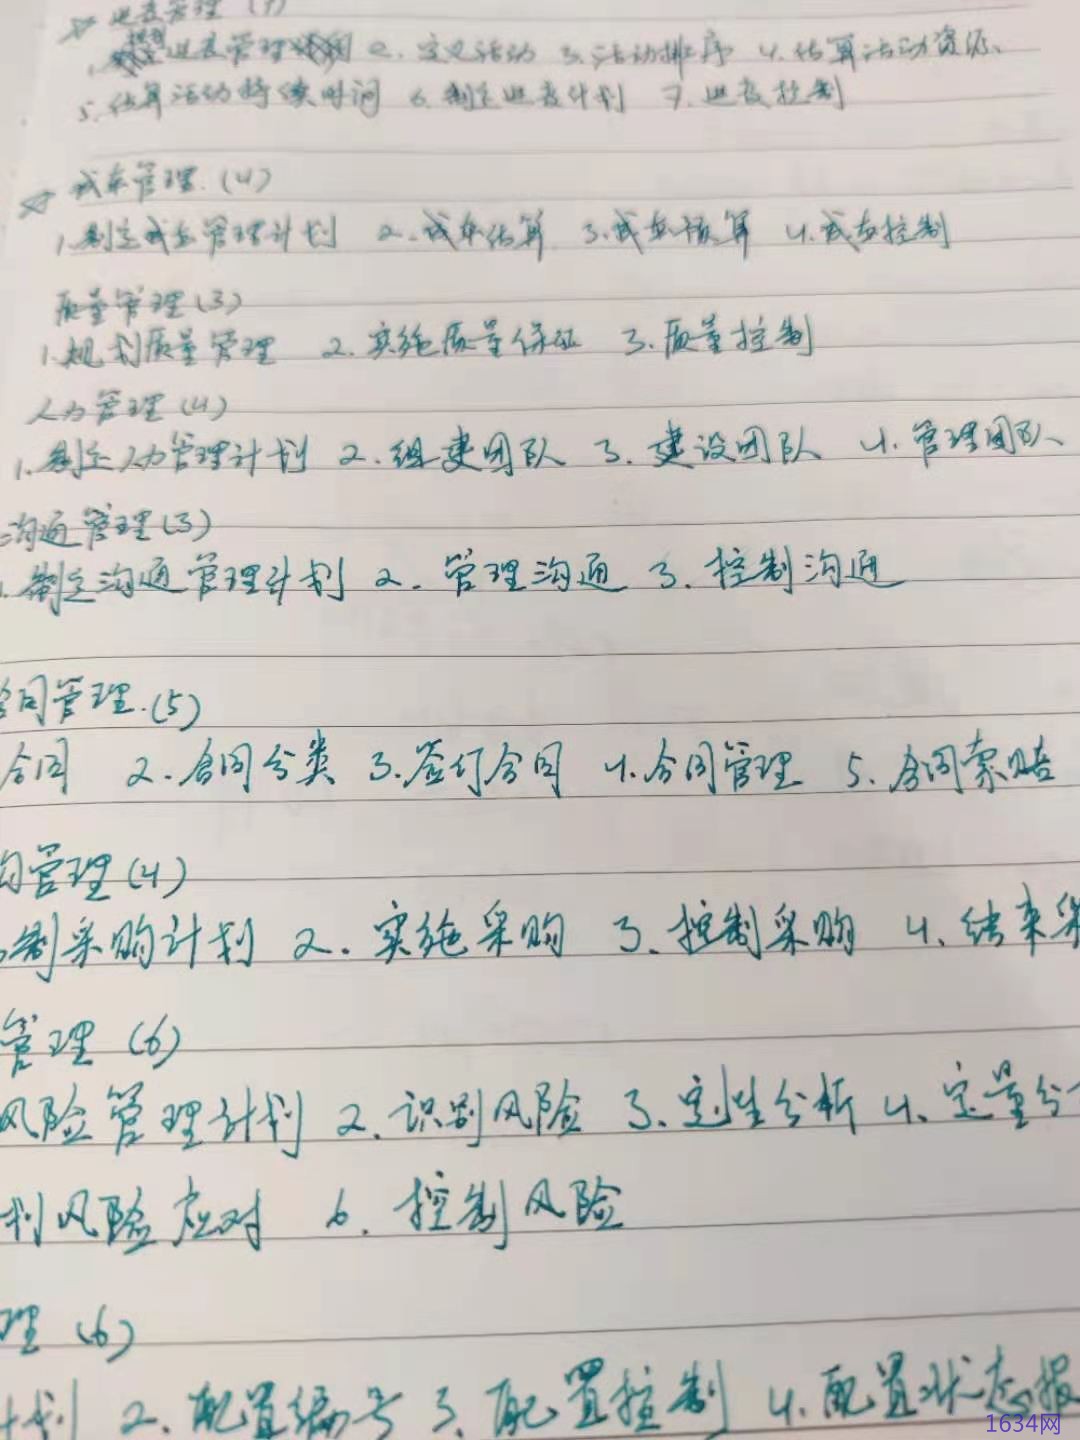 进度管理(7)
规划进度管理 2. 定义活动 3. 活动排序 4. 估算活动资源、
5. 估算活动持续时间 6. 制定进度计划 7. 进度控制
成本管理.(4)
1. 制定成本管理计划 2. 成本估算 3. 成本预算 4. 成本控制
质量管理(3)
1. 规划质量管理 2. 实施质量保证 3. 质量控制
人力管理(4)
1. 制定人力管理计划 2. 组建团队 3. 建设团队 4. 管理团队
沟通管理(3)
1. 制定沟通管理计划 2. 管理沟通 3. 控制沟通
合同管理.(5)
合同 2. 合同分类 3. 签订合同 4. 合同管理 5. 合同索赔
购管理(4)
制采购计划 2. 实施采购 3. 控制采购 4. 结束采
管理(6)
风险管理计划 2. 识别风险 3. 定性分析 4. 定量分
划风险应对 6. 控制风险
理(6)
计划 2. 配置编号 3. 配置控制 4. 配置状态报
1634网